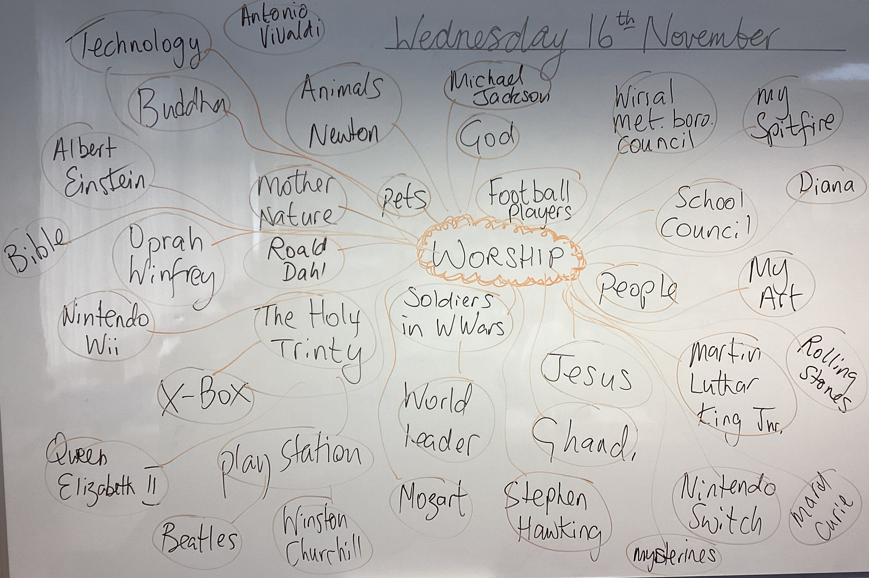 Wednesday 16th November
Technology
Antonio
Vivaldi
Buddha
Animals
Newton
Michael
Jackson
God
Wirral
met. boro.
council
my
Spitfire
Albert
Einstein
Mother
Nature
Pets
Football
Players
School
Council
Diana
Bible
Oprah
Winfrey
Roald
Dahl
WORSHIP
People
My
Art
Nintendo
Wii
The Holy
Trinty
Soldiers
in WWars
Jesus
Martin
Luthar
King Jnr.
Rolling
Stones
X-Box
World
Leader
Ghandi
Queen
Elizabeth II
play station
Mozart
Stephen
Hawking
Nintendo
Switch
Curie
Beatles
Winston
Churchill
mysterines